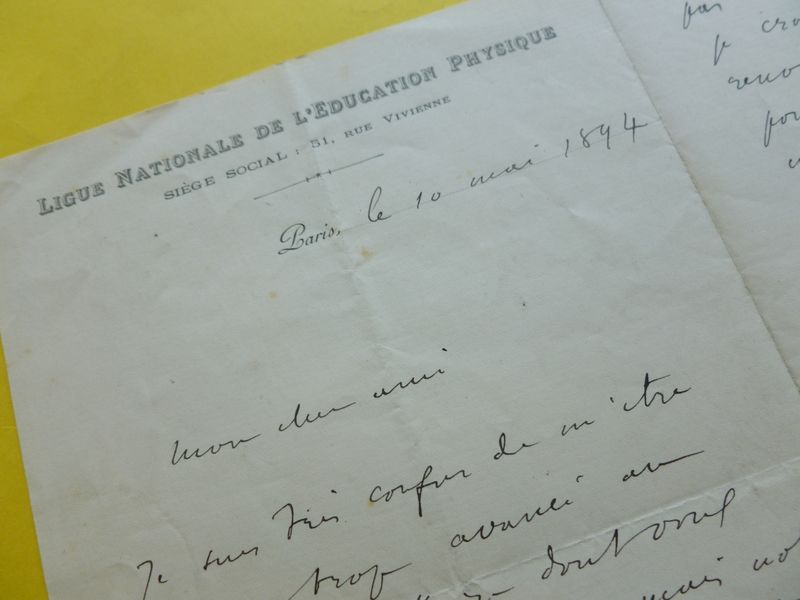 LIGUE NATIONALE DE L'ÉDUCATION PHYSIQUE
SIÈGE SOCIAL : 51, RUE VIVIENNE
Paris, le 10 mai 1894
mon cher ami
Je suis très confus de m'être
trop avancé au
dont
mais
pas
je